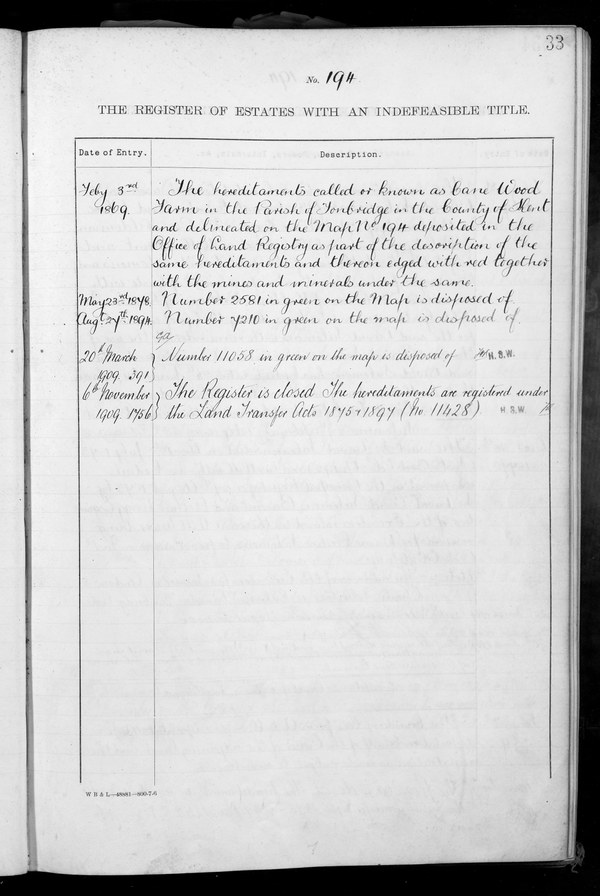 33
No. 194
THE REGISTER OF ESTATES WITH AN INDEFEASIBLE TITLE.
Date of Entry.
Description.
Feby 3rd The hereditaments called or known as Cane Wood
1869. Farm in the Parish of Tonbridge in the County of Kent
and delineated on the Map No 194 deposited in the
Office of Land Registry as part of the description of the
same hereditaments and thereon edged with red together
with the mines and minerals under the same.
May 23rd 1878. Number 2581 in green on the Map is disposed of.
Augt 27th 1894. Number 7210 in green on the map is disposed of.
20th March } Number 11058 in green on the map is disposed of H.S.W.
1909. 391
6th November } The Register is closed The hereditaments are registered under
1909. 1756 the Land Transfer Acts 1875 & 1897 (No. 11428) H.S.W.
W B & L—48881—800-7-6